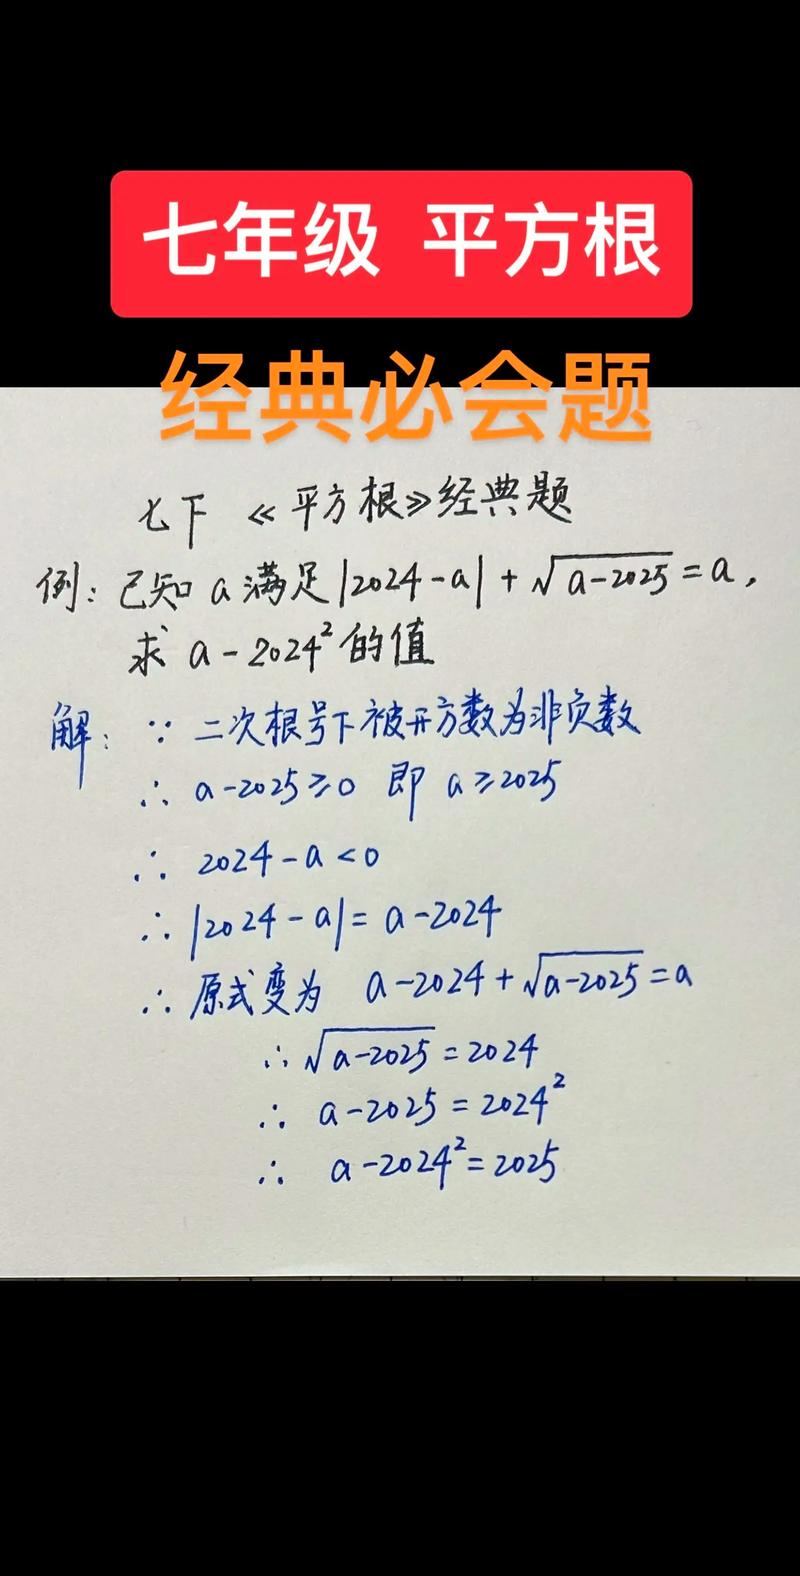 七年级 平方根
经典必会题
七下 《平方根》经典题
例: 已知 a 满足|2024-a|+√(a-2025)=a,
求 a-2024²的值
解: ∵ 二次根号下被开方数为非负数
∴ a-2025≥0 即 a≥2025
∴ 2024-a<0
∴ |2024-a|= a-2024
∴ 原式变为 a-2024+√(a-2025)=a
∴ √(a-2025)=2024
∴ a-2025=2024²
∴ a-2024²=2025